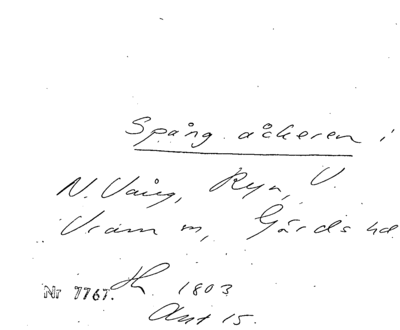 Spång åckeren i
N. Vång, Ryn, V.
Vram m, Gärds hd.
Nr 7767. 1803
Akt 15.